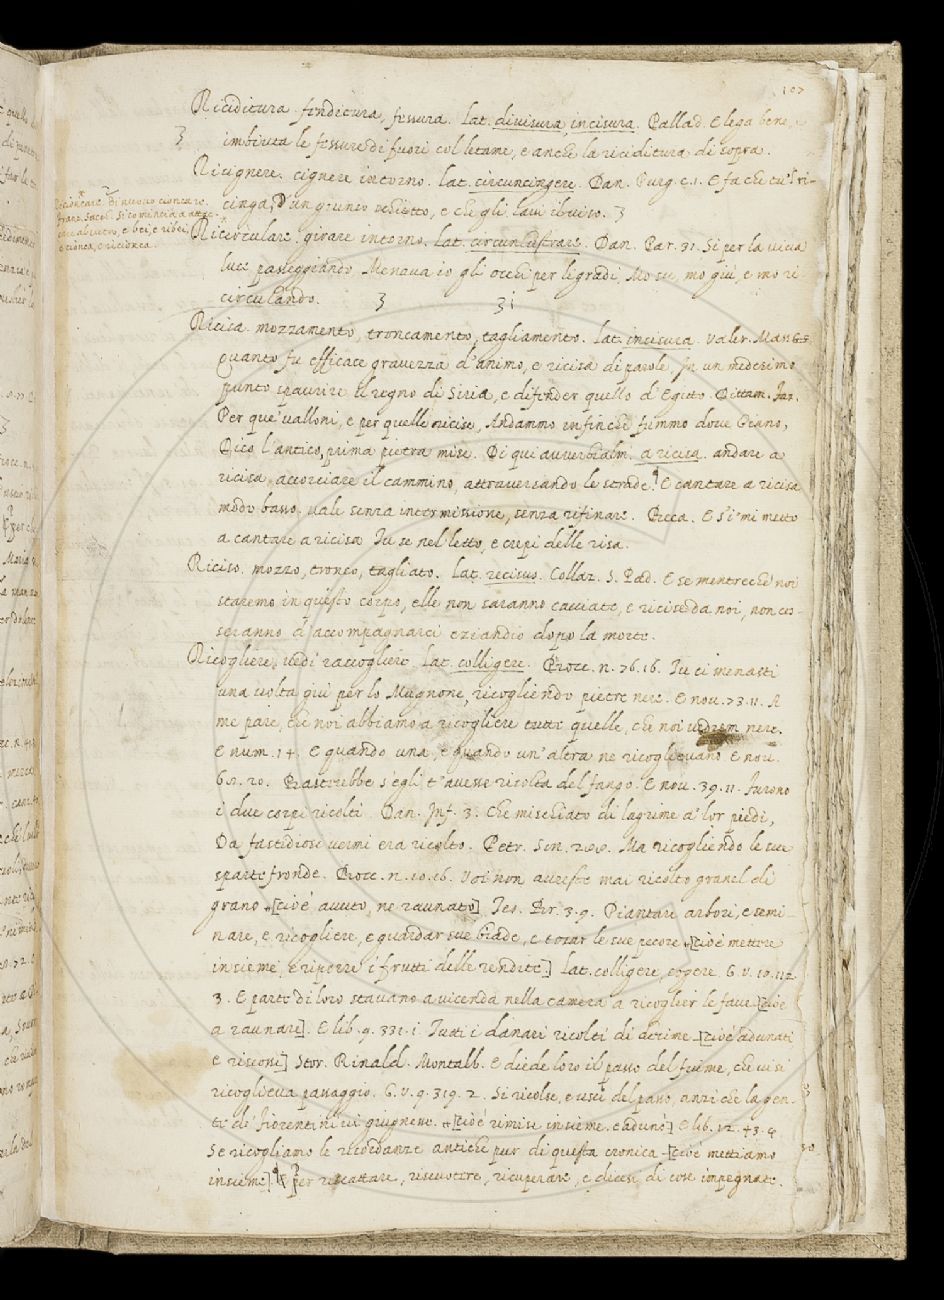 107
Riciditura. fenditura, fessura. Lat. divisura, incisura. Pallad. E lega bene, e
imbiuta le fessure di fuori col letame, e anche la riciditura di sopra.
Ricignere. cignere intorno. Lat. circuncingere. Dan. Purg. c. 1. E fa che tu 'l ri-
cinga, D'un giunco schietto, e che gli lavi il viso.
Ricioncare. Di nuovo cioncare.
Franc. Sacch. Si comincia a attac-
care al vetro, e bei, e ribei,
e cionca, e ricionca.
Ricirculare. girare intorno. Lat. circunlustrare. Dan. Par. 31. Sì per la viva
luce passeggiando, Menava io gli occhi per li gradi, Mo su, mo giù, e mo ri-
circulando.
Ricisa. mozzamento, troncamento, tagliamento. Lat. incisura. Valer. Mass.
Quanto fu efficace gravezza d'animo, e ricisa di parole, In un medesimo
punto spaurire il regno di Siria, e difender quello d'Egitto. Dittam.
Per que' valloni, e per quelle ricise, Andammo infinchè fummo dove Ciano,
Dico l'antico, prima pietra mise. Di qui avverbialm. a ricisa. andare a
ricisa, accorciare il cammino, attraversando le strade. E cantare a ricisa
modo basso. vale senza intermissione, senza rifinare. Becca. E s'i' mi metto
a cantare a ricisa Tu se nel letto, e crepi delle risa.
Riciso. mozzo, tronco, tagliato. Lat. recisus. Collaz. S. Pad. E se mentreché noi
staremo in questo corpo, elle non saranno cacciate, e ricise da noi, non ces-
seranno d'accompagnarci eziandio dopo la morte.
Ricogliere. vedi raccogliere. Lat. colligere. Bocc. n. 76. 16. Tu ci menasti
una volta giù per lo Mugnone, ricogliendo pietre nere. E nov. 73. 11. A
me pare, che noi abbiamo a ricogliere tutte quelle, che noi vedrem nere.
E num. 14. E quando una, e quando un' altra ne ricoglievano. E nov.
62. 20. Basterebbe s'egli t'avesse ricolta del fango. E nov. 39. 11. Furono
i due corpi ricolti. Dan. Inf. 3. Che mischiato di lagrime a' lor piedi,
Da fastidiosi vermi era ricolto. Petr. Son. Ma ricogliendo le sue
sparte fronde. Bocc. n. 10. 16. Voi non avreste mai ricolto granel di
grano [cioè avuto, ne raunato] Tes. Br. 3. 9. Piantare arbori, e semi-
nare, e ricogliere, e guardar sue biade, e tosar le sue pecore [cioè mettere
insieme, e riporre i frutti delle rendite] Lat. colligere, cogere. G. V. 10. 112
3. E parte di loro stavano a vicenda nella camera a ricoglier le fave [cioè
a raunare]. E lib. 9. 331. 1. Tutti i danari ricolti di decime [cioè adunati
e riscossi] Stor. Rinald. Montalb. E diede loro il passo del fiume, che vi si
ricoglieva passaggio. G. V. 9. 319. 2. Si ricolse, e uscì del passo, anzi che la gen-
te de' Fiorentini vi giugnesse. [cioè si mise insieme e adunò] E lib. 12. 43. 4
Se ricogliamo le ricordanze antiche pur di questa cronica [cioè mettiamo
insieme] Per riscattare, riscuotere, ricuperare, e dicesi di cose impegnate.